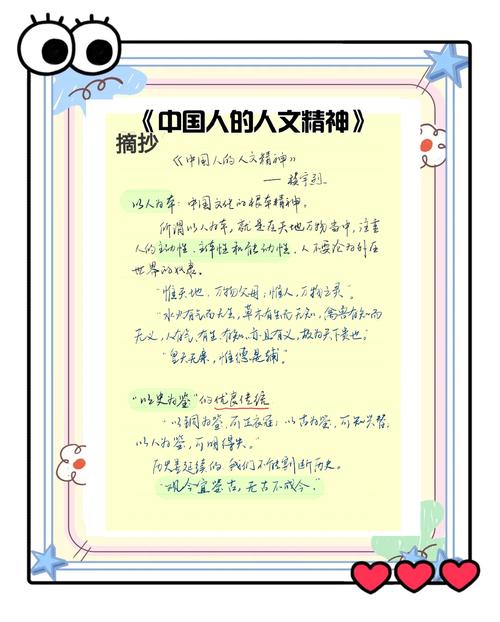 《中国人的人文精神》
摘抄
《中国人的人文精神》
——楼宇烈
以人为本：中国文化的根本精神。
所谓以人为本，就是在天地万物当中，注重
人的主动性、主体性和能动性，人不要沦为外在
世界的奴隶。
"惟天地，万物父母；惟人，万物之灵。"
"水火有气而无生，草木有生而无知，禽兽有知而
无义，人有气、有生、有知，亦且有义，故为天下贵也。"
"皇天无亲，惟德是辅"。
"以史为鉴"的优良传统
"以铜为鉴，可正衣冠；以古为鉴，可知兴替；
以人为鉴，可明得失。"
历史是延续的，我们不能割断历史。
"观今宜鉴古，无古不成今。"